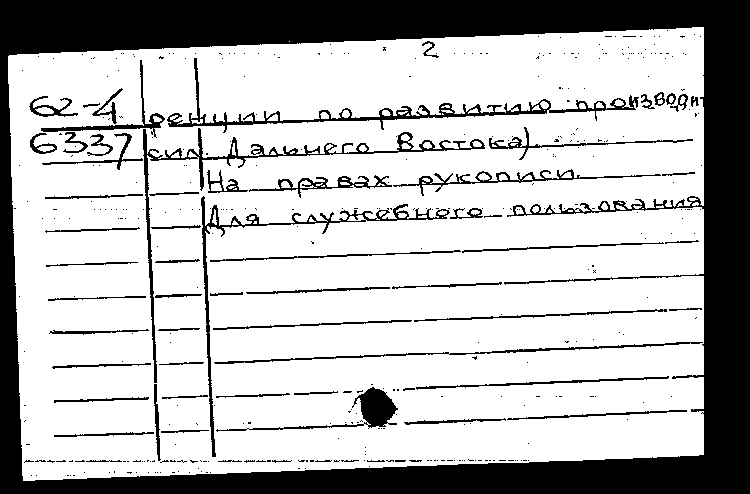 2
62-4 ренции по развитию производит
6337 сил Дальнего Востока).
На правах рукописи.
Для служебного пользования